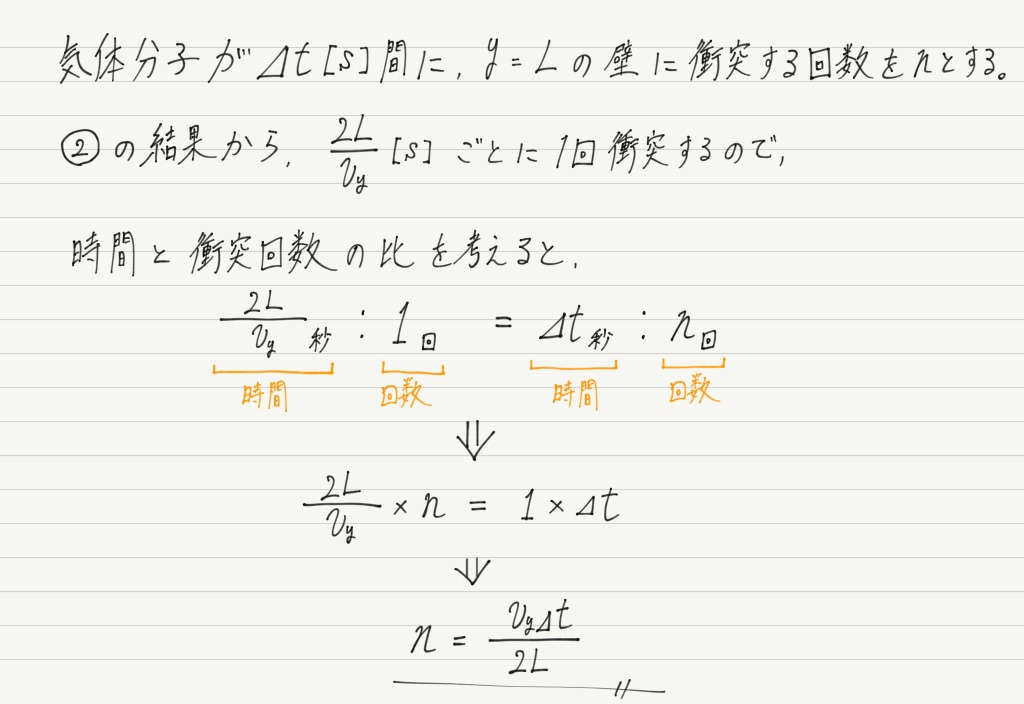 気体分子がΔt[s]間に, y=Lの壁に衝突する回数をnとする。
②の結果から, 2L/v_y [s] ごとに1回衝突するので,
時間と衝突回数の比を考えると,
2L/v_y 秒 : 1回 = Δt秒 : n回
時間 回数 時間 回数
⇓
2L/v_y × n = 1 × Δt
⇓
n = v_yΔt/2L